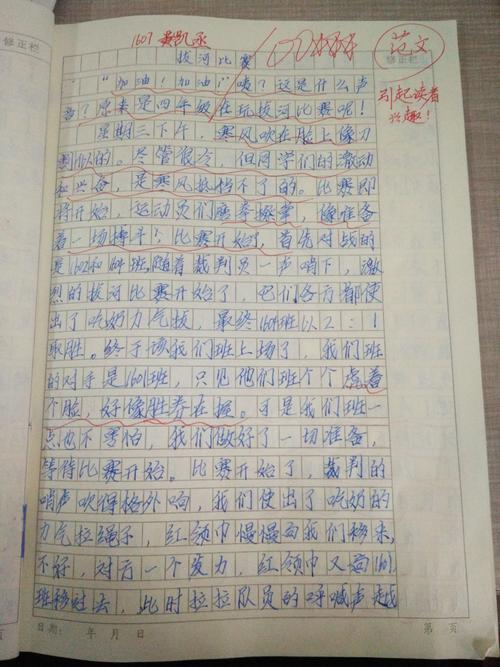 修正栏
1607 凯丞
100分
范文
修正栏
引起读者
兴趣！
拔河比赛
“加油！加油！”咦？这是什么声
音？原来是四年级在玩拔河比赛呢！
星期三下午，寒风吹在脸上像刀
割似的。尽管很冷，但同学们的激动
和兴奋，是寒风抵挡不了的。比赛即
将开始，运动员们摩拳擦掌，像准备
着一场搏斗！比赛开始了，首先对战的
是1602和1604班，随着裁判员一声哨下，激
烈的拔河比赛开始了，它们各方都使
出了吃奶力气拔，最终1604班以2：1
取胜。终于该我们班上场了，我们班
的对手是1601班，只见他们班个个
个脸，好像胜券在握。可是我们班一
点也不害怕，我们做好了一切准备，
等待比赛开始。比赛开始了，裁判的
哨声吹得格外响，我们使出了吃奶的
力气拉绳子，红领巾慢慢向我们移来，
不好，对方一个发力，红领巾又向1601
班移过去，此时拉拉队员的呼喊声越
日期： 年 月 日
第 页
页